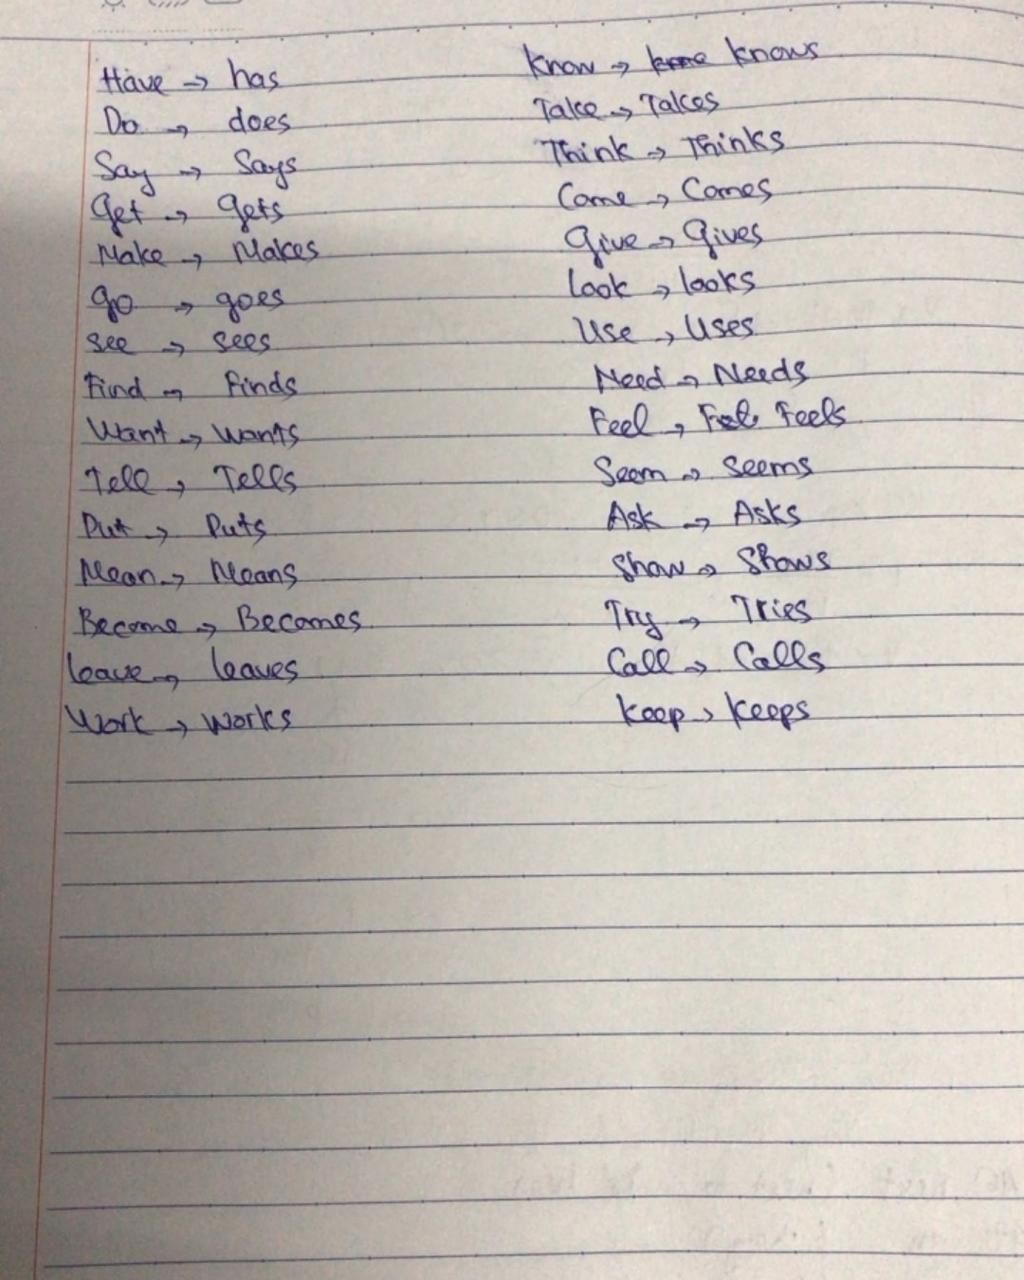 Have → has
Do → does
Say → Says
Get → Gets
Make → Makes
go → goes
see → sees
Find → Finds
Want → Wants
Tell → Tells
Put → Puts
Mean → Means
Become → Becomes
leave → leaves
Work → Works
Know → knows
Take → Takes
Think → Thinks
Come → Comes
Give → Gives
look → looks
Use → Uses
Need → Needs
Feel → Feels
Seem → Seems
Ask → Asks
Show → Shows
Try → Tries
Call → Calls
Keep → Keeps